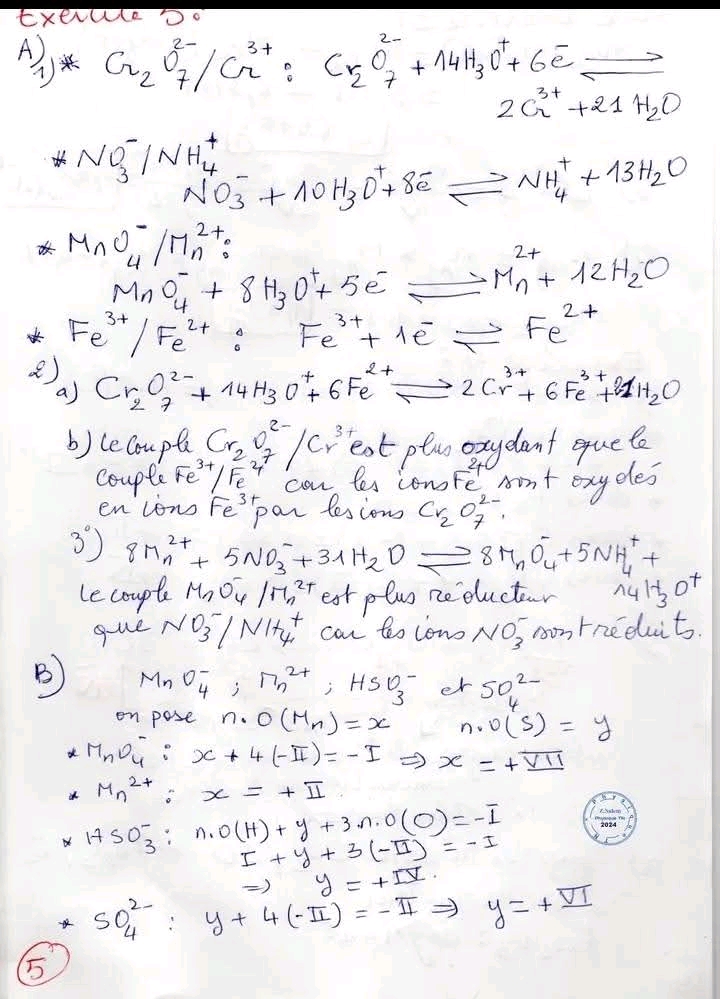 Exercice 5:
A)
1) * Cr₂O₇²⁻/Cr³⁺ : Cr₂O₇²⁻ + 14H₃O⁺ + 6ē ⇌
2Cr³⁺ + 21 H₂O
* NO₃⁻/NH₄⁺
NO₃⁻ + 10H₃O⁺ + 8ē ⇌ NH₄⁺ + 13H₂O
* MnO₄⁻/Mn²⁺ :
MnO₄⁻ + 8H₃O⁺ + 5ē ⇌ Mn²⁺ + 12H₂O
* Fe³⁺/Fe²⁺ : Fe³⁺ + 1ē ⇌ Fe²⁺
2)
a) Cr₂O₇²⁻ + 14H₃O⁺ + 6Fe²⁺ ⇌ 2Cr³⁺ + 6Fe³⁺ + 21H₂O
b) le couple Cr₂O₇²⁻/Cr³⁺ est plus oxydant que le
couple Fe³⁺/Fe²⁺ car les ions Fe²⁺ sont oxydés
en ions Fe³⁺ par les ions Cr₂O₇²⁻.
3°) 8Mn²⁺ + 5NO₃⁻ + 31H₂O ⇌ 8MnO₄⁻ + 5NH₄⁺ +
14H₃O⁺
le couple MnO₄⁻/Mn²⁺ est plus réducteur
que NO₃⁻/NH₄⁺ car les ions NO₃⁻ sont réduits.
B) MnO₄⁻ ; Mn²⁺ ; HSO₃⁻ et SO₄²⁻
on pose n.O(Mn) = x n.O(S) = y
* MnO₄⁻ : x + 4(-II) = -I ⇒ x = +VII
* Mn²⁺ : x = +II.
* HSO₃⁻ : n.O(H) + y + 3.n.O(O) = -I
I + y + 3(-II) = -I
⇒ y = +IV.
* SO₄²⁻ : y + 4(-II) = -II ⇒ y = +VI
Z.Salem
2024
5